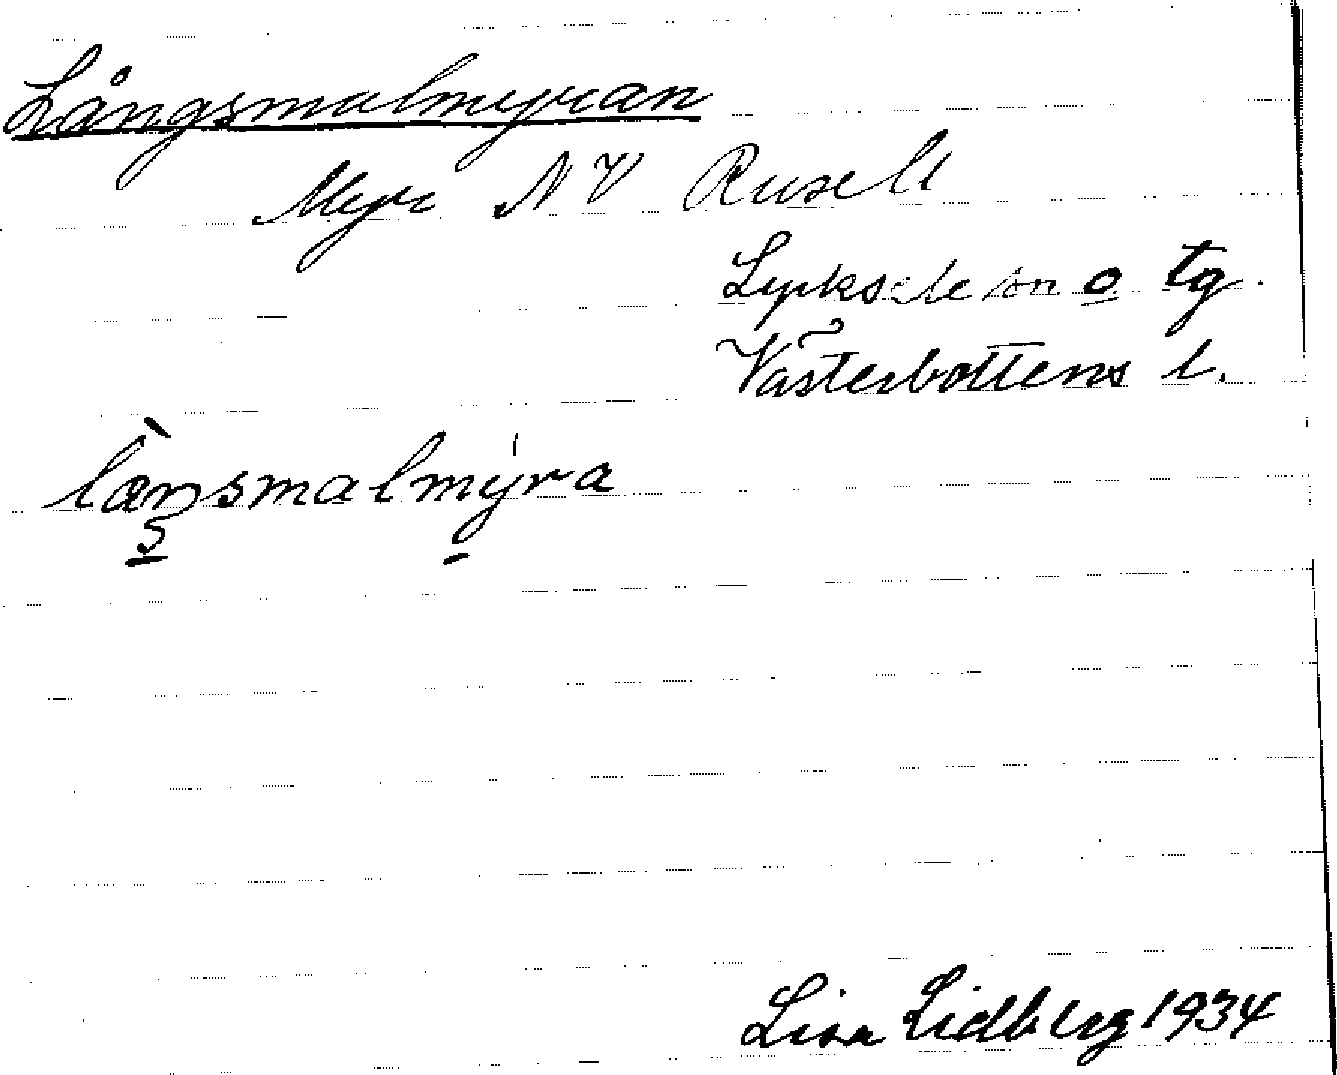 Långsmalmyran
Myr NV Rusele
Lycksele sn o tg.
Västerbottens l.
lànsmalmýra
Lisa Lidberg 1934